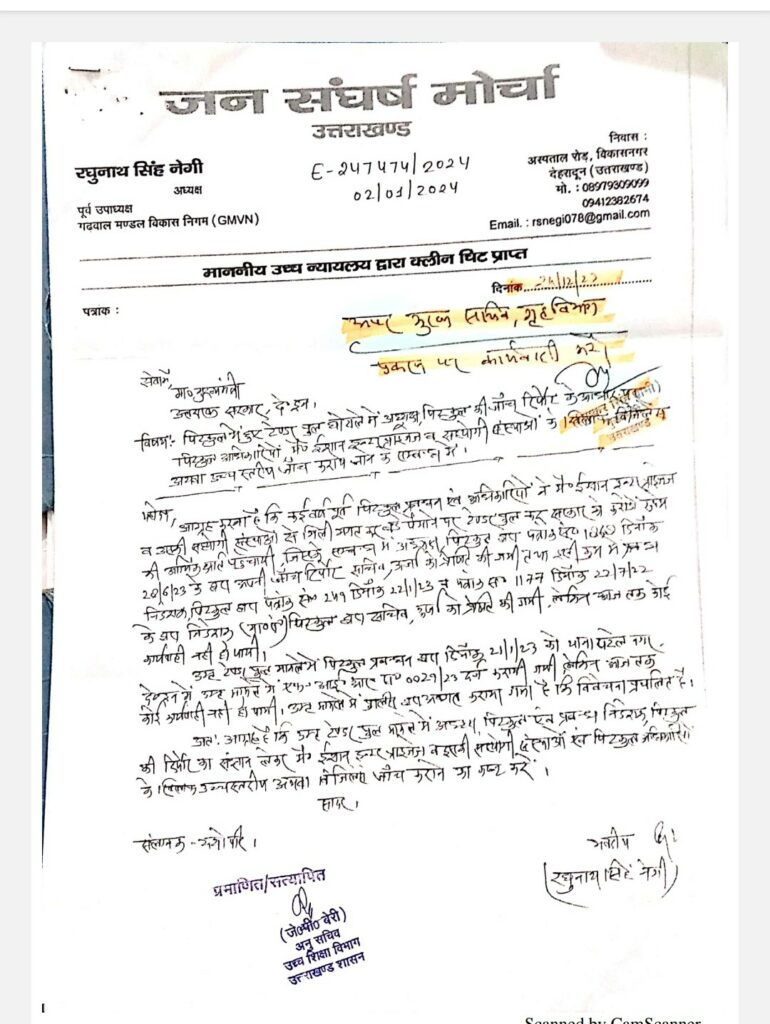 जन संघर्ष मोर्चा
उत्तराखण्ड
रघुनाथ सिंह नेगी
अध्यक्ष
पूर्व उपाध्यक्ष
गढ़वाल मण्डल विकास निगम (GMVN)
E-247474/2024
02/01/2024
निवास :
अस्पताल रोड़, विकासनगर
देहरादून (उत्तराखण्ड)
मो. : 08979309099
09412382674
Email. : rsnegi078@gmail.com
माननीय उच्च न्यायलय द्वारा क्लीन चिट प्राप्त
पत्रांक :
दिनांक
अपर मुख्य सचिव, गृह विभाग
प्रकरण पर कार्यवाही करें।
सेवा में,
मा० मुख्यमंत्री
उत्तराखण्ड सरकार, देहरादून।
विषय:- पिटकुल में हुए टेण्डर पूल घोटाले में अध्यक्ष, पिटकुल की जाँच रिपोर्ट के आधार पर
पिटकुल अधिकारियों, मै० ईशान इन्टरप्राइजेज व सहयोगी संस्थाओं के खिलाफ विजिलेंस
अथवा उच्च स्तरीय जाँच कराये जाने के सम्बन्ध में।
महोदय,
आग्रह करना है कि कई वर्ष पूर्व पिटकुल प्रबन्धन एवं अधिकारियों ने मै० ईशान इन्टरप्राइजेज
व उसकी सहयोगी संस्थाओं से मिली भगत कर बड़े पैमाने पर टेण्डर पूल कर सरकार को करोड़ों रुपए
की आर्थिक क्षति पहुंचायी, जिसके सम्बन्ध में अध्यक्ष, पिटकुल द्वारा पत्रांक सं० दिनांक
20/6/23 के द्वारा अपनी जाँच रिपोर्ट सचिव, ऊर्जा को प्रेषित की गयी तथा इसी क्रम में प्रबन्ध
निदेशक, पिटकुल द्वारा पत्रांक सं० 249 दिनांक 22/1/23 व पत्रांक सं० 1177 दिनांक 22/7/22
के द्वारा निदेशक पिटकुल द्वारा सचिव, ऊर्जा को प्रेषित की गयी, लेकिन आज तक कोई
कार्यवाही नहीं हो पायी।
उक्त टेण्डर पूल मामले में पिटकुल प्रबन्धन द्वारा दिनांक 21/1/23 को थाना पटेल नगर
देहरादून में उक्त मामले में एफ० आई० आर० सं० 0029/23 दर्ज करायी गयी लेकिन आज तक
कोई कार्यवाही नहीं हो पायी। उक्त मामले में पुलिस द्वारा अवगत कराया गया है कि विवेचना प्रचलित है।
अतः आग्रह है कि उक्त टेण्डर पूल मामले में अध्यक्ष, पिटकुल एवं प्रबन्ध निदेशक, पिटकुल
की रिपोर्ट का संज्ञान लेकर मै० ईशान इन्टरप्राइजेज व इसकी सहयोगी संस्थाओं एवं पिटकुल अधिकारियों
के खिलाफ उच्चस्तरीय अथवा विजिलेंस जाँच कराने का कष्ट करें।
सादर,
संलग्नक - यथोपरि।
भवदीय
(रघुनाथ सिंह नेगी)
प्रमाणित/सत्यापित
(जे०पी० बेरी)
अनु सचिव
उच्च शिक्षा विभाग
उत्तराखण्ड शासन
Scanned by CamScanner